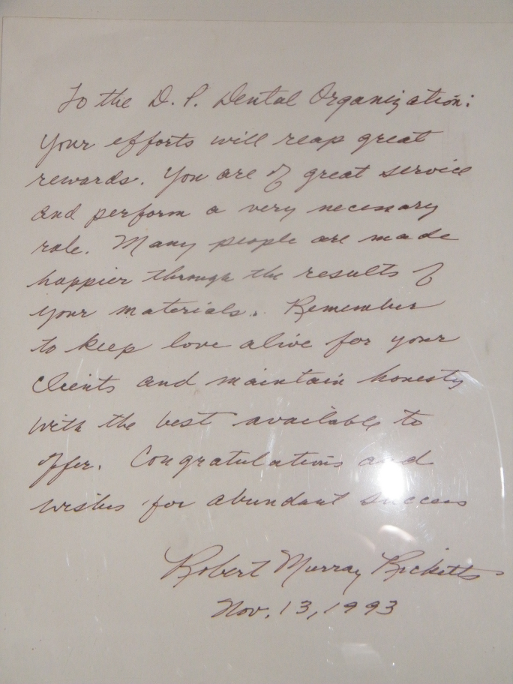 To the D. P. Dental Organization:
Your efforts will reap great
rewards. You are of great service
and perform a very necessary
role. Many people are made
happier through the results of
your materials. Remember
to keep love alive for your
clients and maintain honesty
with the best available to
offer. Congratulations and
wishes for abundant success
Robert Murray Ricketts
Nov. 13, 1993